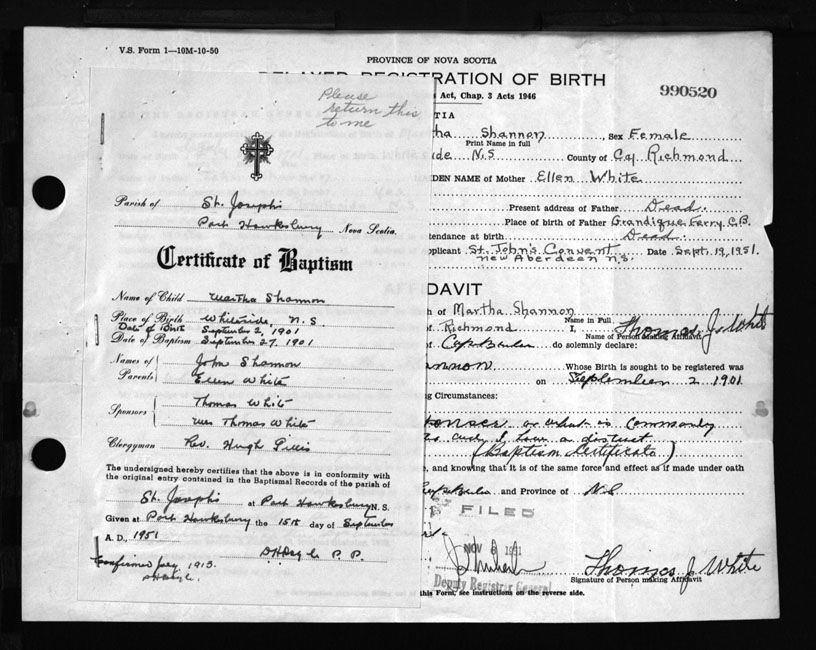 V.S. Form 1—10M-10-50
PROVINCE OF NOVA SCOTIA
DELAYED REGISTRATION OF BIRTH
Act, Chap. 3 Acts 1946
990520
Please
return this
to me
Parish of St. Joseph's
Port Hawksbury Nova Scotia.
Certificate of Baptism
Name of Child Martha Shannon
Place of Birth Whiteside N.S
Date of Birth September 2, 1901
Date of Baptism September 27, 1901
Names of Parents
John Shannon
Ellen White
Sponsors
Thomas White
Mrs Thomas White
Clergyman Rev. Hugh Gillis
The undersigned hereby certifies that the above is in conformity with
the original entry contained in the Baptismal Records of the parish of
St. Joseph's at Port Hawksbury N.S.
Given at Port Hawksbury the 15th day of September
A. D., 1951
P. P.
Confirmed July, 1913.
TIA
tha Shannon, Sex Female
Print Name in full
ide N.S County of Richmond
DEN NAME of Mother Ellen White
Present address of Father Dead
Place of birth of Father Grandique Ferry, C.B.
ttendance at birth Dead
pplicant St. John's Convent Date Sept. 19, 1951.
New Aberdeen N.S.
DAVIT
h of Martha Shannon
Name in Full
of Richmond I, Thomas J. White
Name of Person Making Affidavit
of Cape Breton do solemnly declare:
annon Whose Birth is sought to be registered was
on September 2 1901
ng Circumstances:
or what is commonly
I have a distinct
(Baptism Certificate)
e, and knowing that it is of the same force and effect as if made under oath
and Province of N.S
FILED
NOV 1951
Deputy Registrar General
Thomas J. White
Signature of Person making Affidavit
this Form, see instructions on the reverse side.